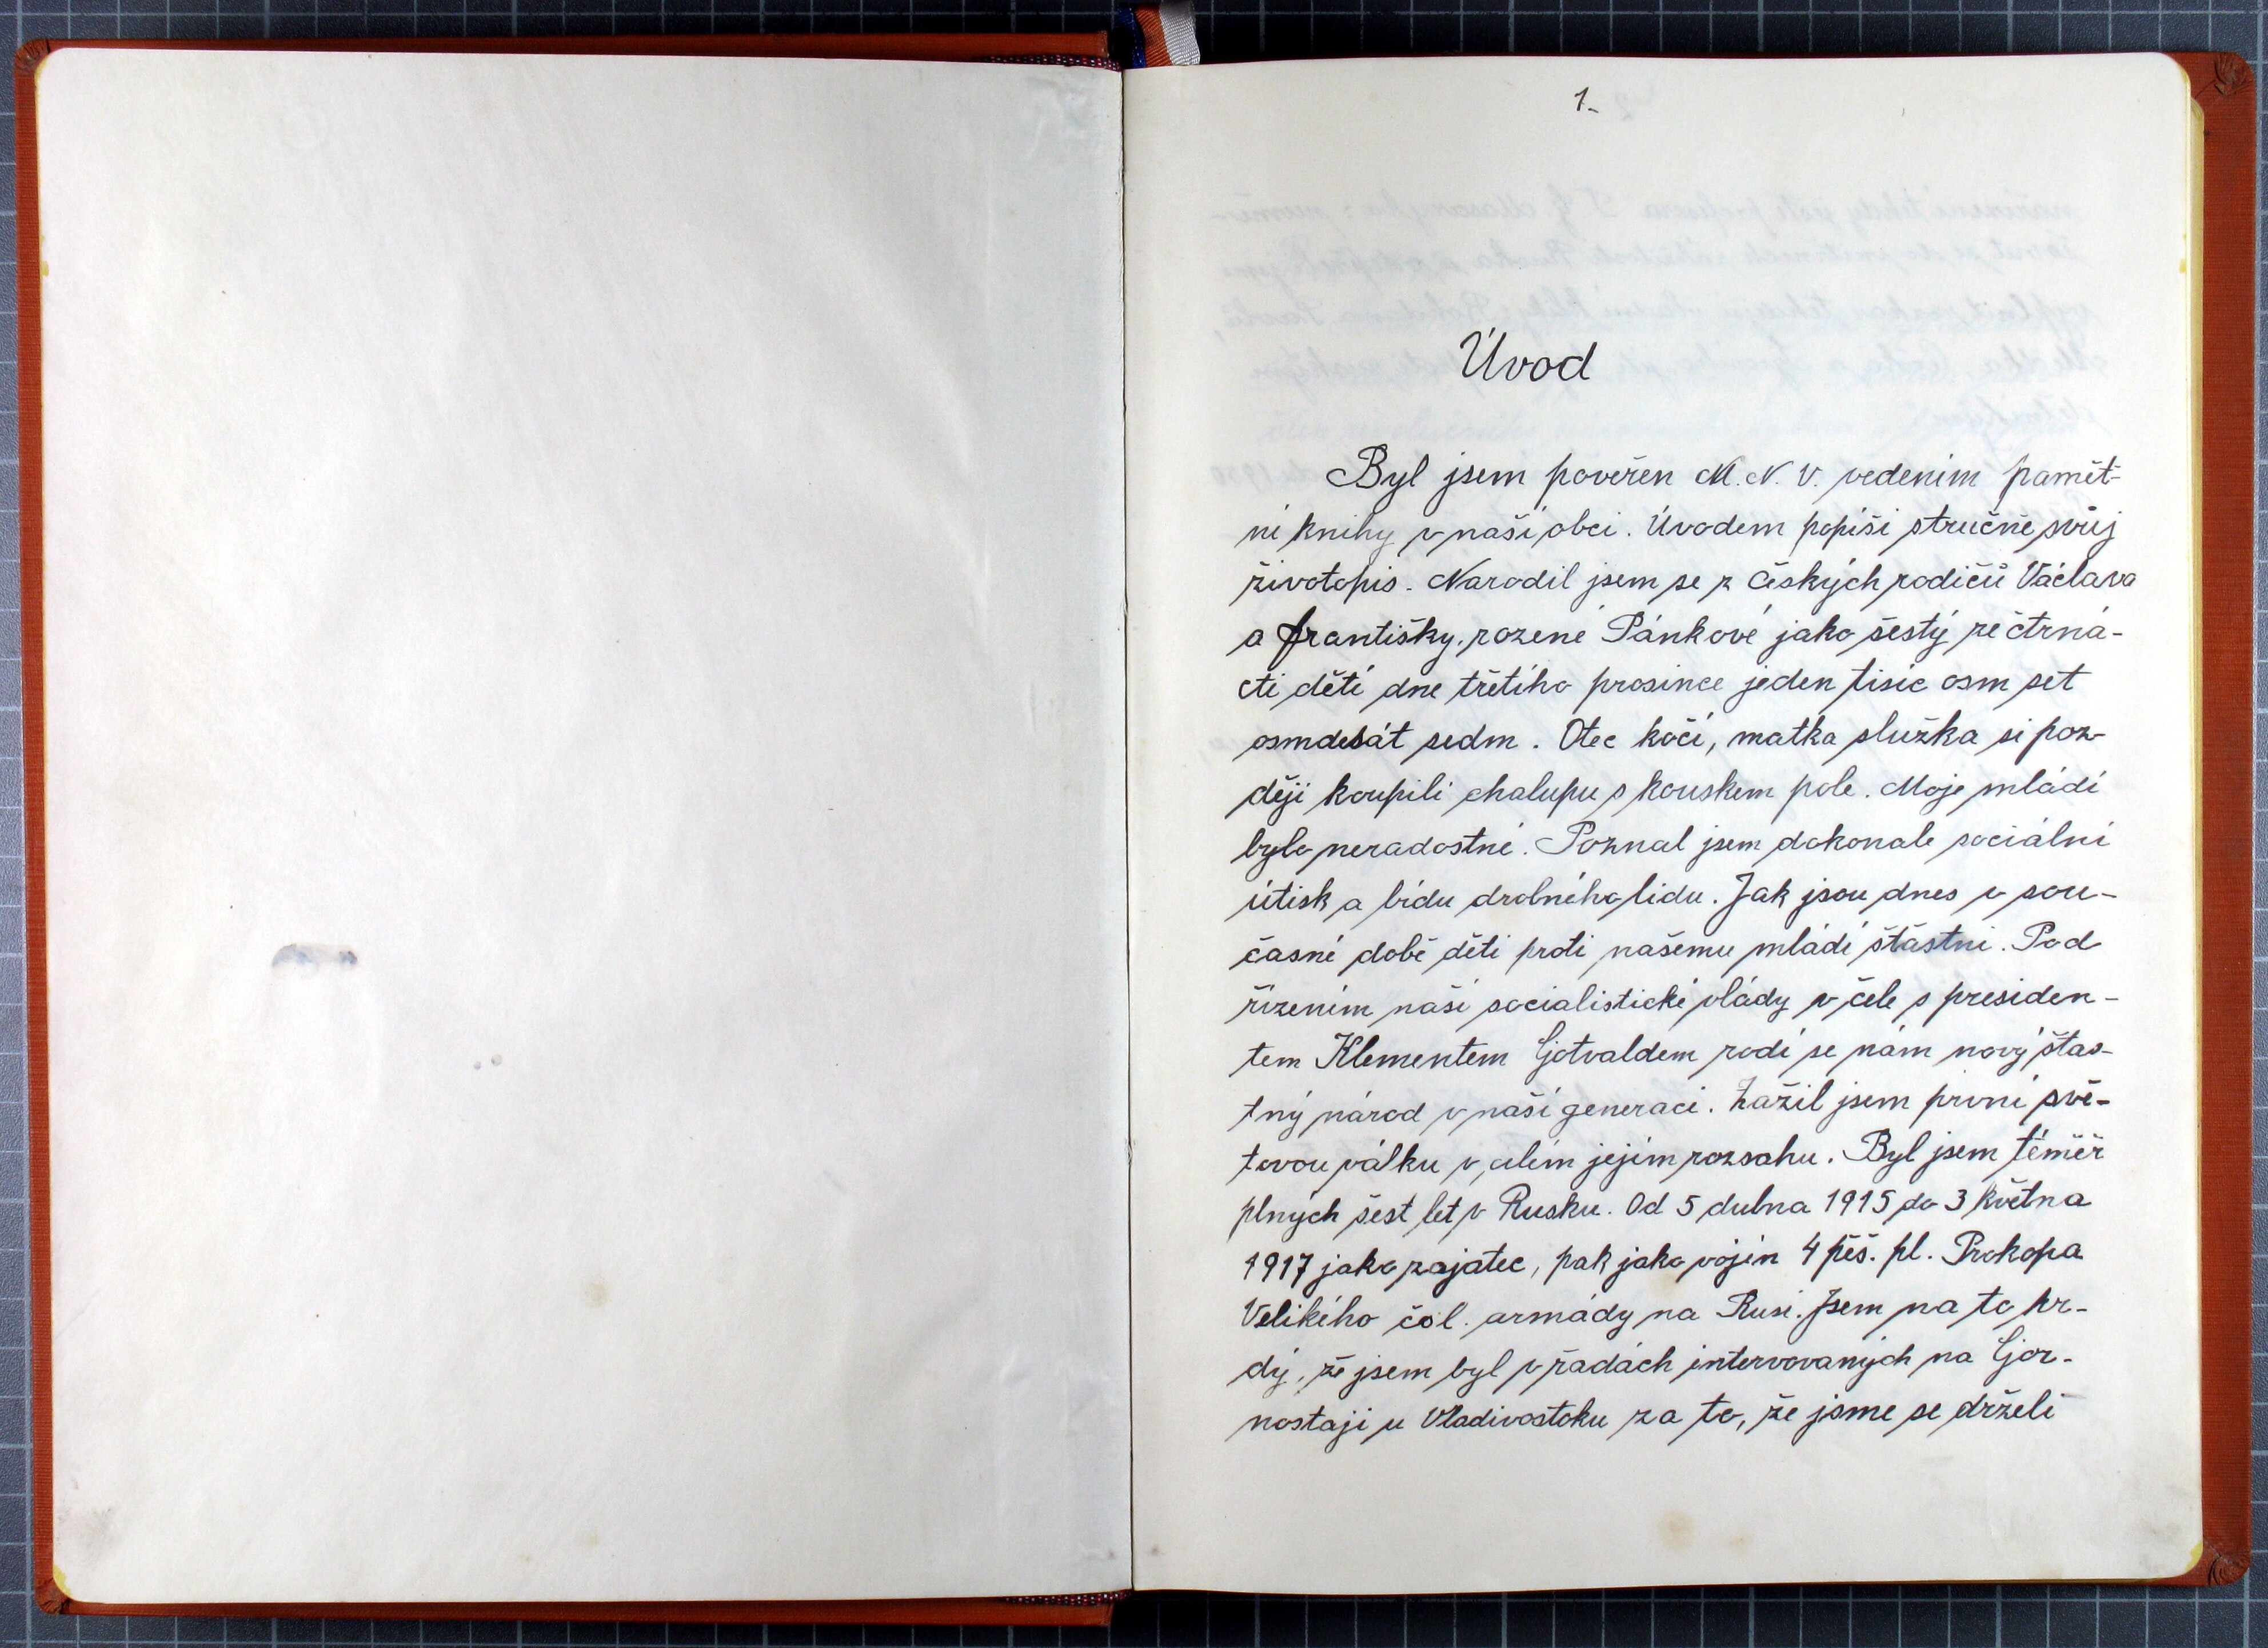 1.
Úvod
Byl jsem pověřen M. N. V. vedením pamět-
ní knihy v naší obci. Úvodem popíši stručně svůj
životopis. Narodil jsem se z českých rodičů Václava
a Františky, rozené Pánkové jako šestý ze čtrná-
cti dětí dne třetího prosince jeden tisíc osm set
osmdesát sedm. Otec kočí, matka služka si poz-
ději koupili chalupu s kouskem pole. Moje mládí
bylo neradostné. Poznal jsem dokonale sociální
útisk a bídu drobného lidu. Jak jsou dnes v sou-
časné době děti proti našemu mládí šťastni. Pod
řízením naší socialistické vlády v čele s presiden-
tem Klementem Gotvaldem rodí se nám nový štas-
tný národ v naší generaci. Zažil jsem první svě-
tovou válku v celém jejím rozsahu. Byl jsem téměř
plných šest let v Rusku. Od 5 dubna 1915 do 3 května
1917 jako zajatec, pak jako vojín 4 pěš. pl. Prokopa
Velikého čsl. armády na Rusi. Jsem na to hr-
dý, že jsem byl v řadách intervovaných na Gor-
nostaji u Vladivostoku za to, že jsme se drželi